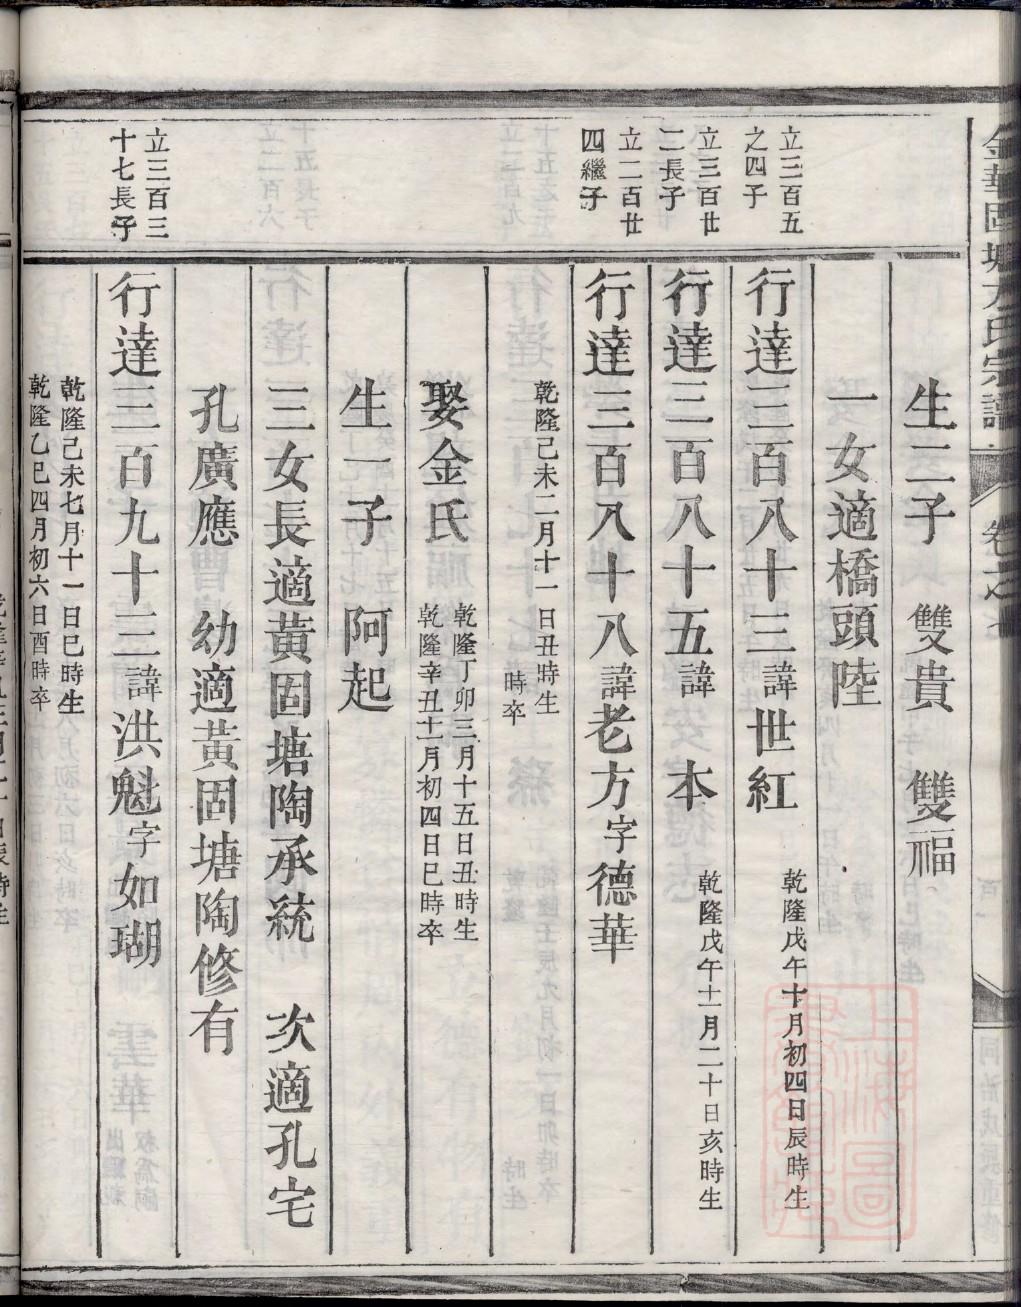 金華固塘方氏宗譜
卷之七
生二子　雙貴　雙福
一女適橋頭陸
立三百五
之四子
行達三百八十三諱世紅
乾隆戊午十月初四日辰時生
立三百廿
二長子
行達三百八十五諱本
乾隆戊午十一月二十日亥時生
立二百廿
四繼子
行達三百八十八諱老方字德華
乾隆己未二月十一日丑時生
時卒
娶金氏
乾隆丁卯三月十五日丑時生
乾隆辛丑十一月初四日巳時卒
生一子　阿起
三女長適黄固塘陶承統　次適孔宅
孔廣應　幼適黃固塘陶修有
立三百三
十七長子
行達三百九十三諱洪魁字如瑚
乾隆己未七月十一日巳時生
乾隆乙巳四月初六日酉時卒